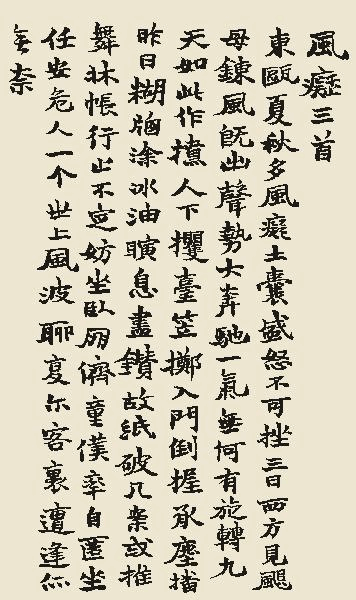 風癡三首
東甌夏秋多風癡土囊盛怒不可挫三日西方見颶
母鍊風既出聲勢大奔馳一氣無何有旋轉九
天如此作人下攫臺笠擲入門倒握承塵播
昨日糊牕涂冰油息盡鑽故紙破几案或推
舞牀帳行止不定妨坐臥儕童僕率自匿坐
任安危人一个世上風波聊复尔客裏遭逢亦
無柰